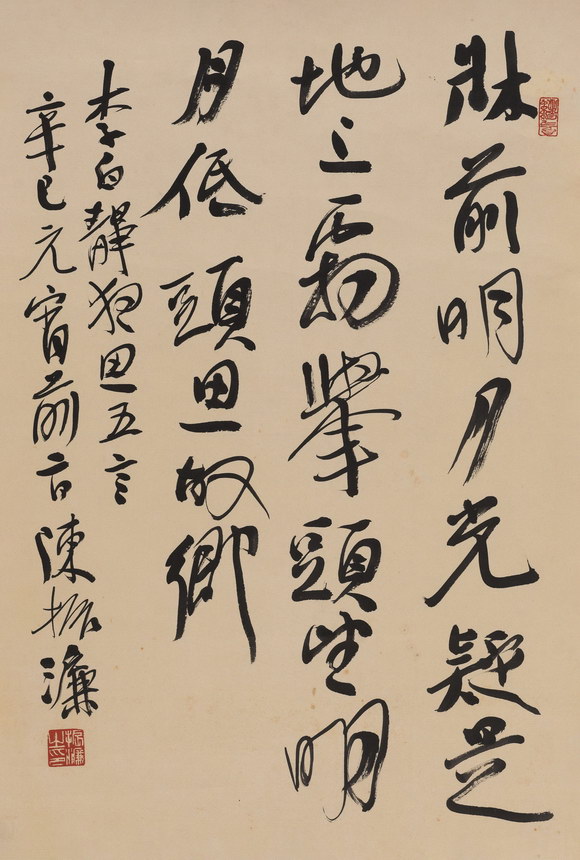 牀前明月光疑是
地上霜舉頭望明
月低頭思故鄉
李白靜夜思五言
辛巳元宵前日陳振濂
振濂之印